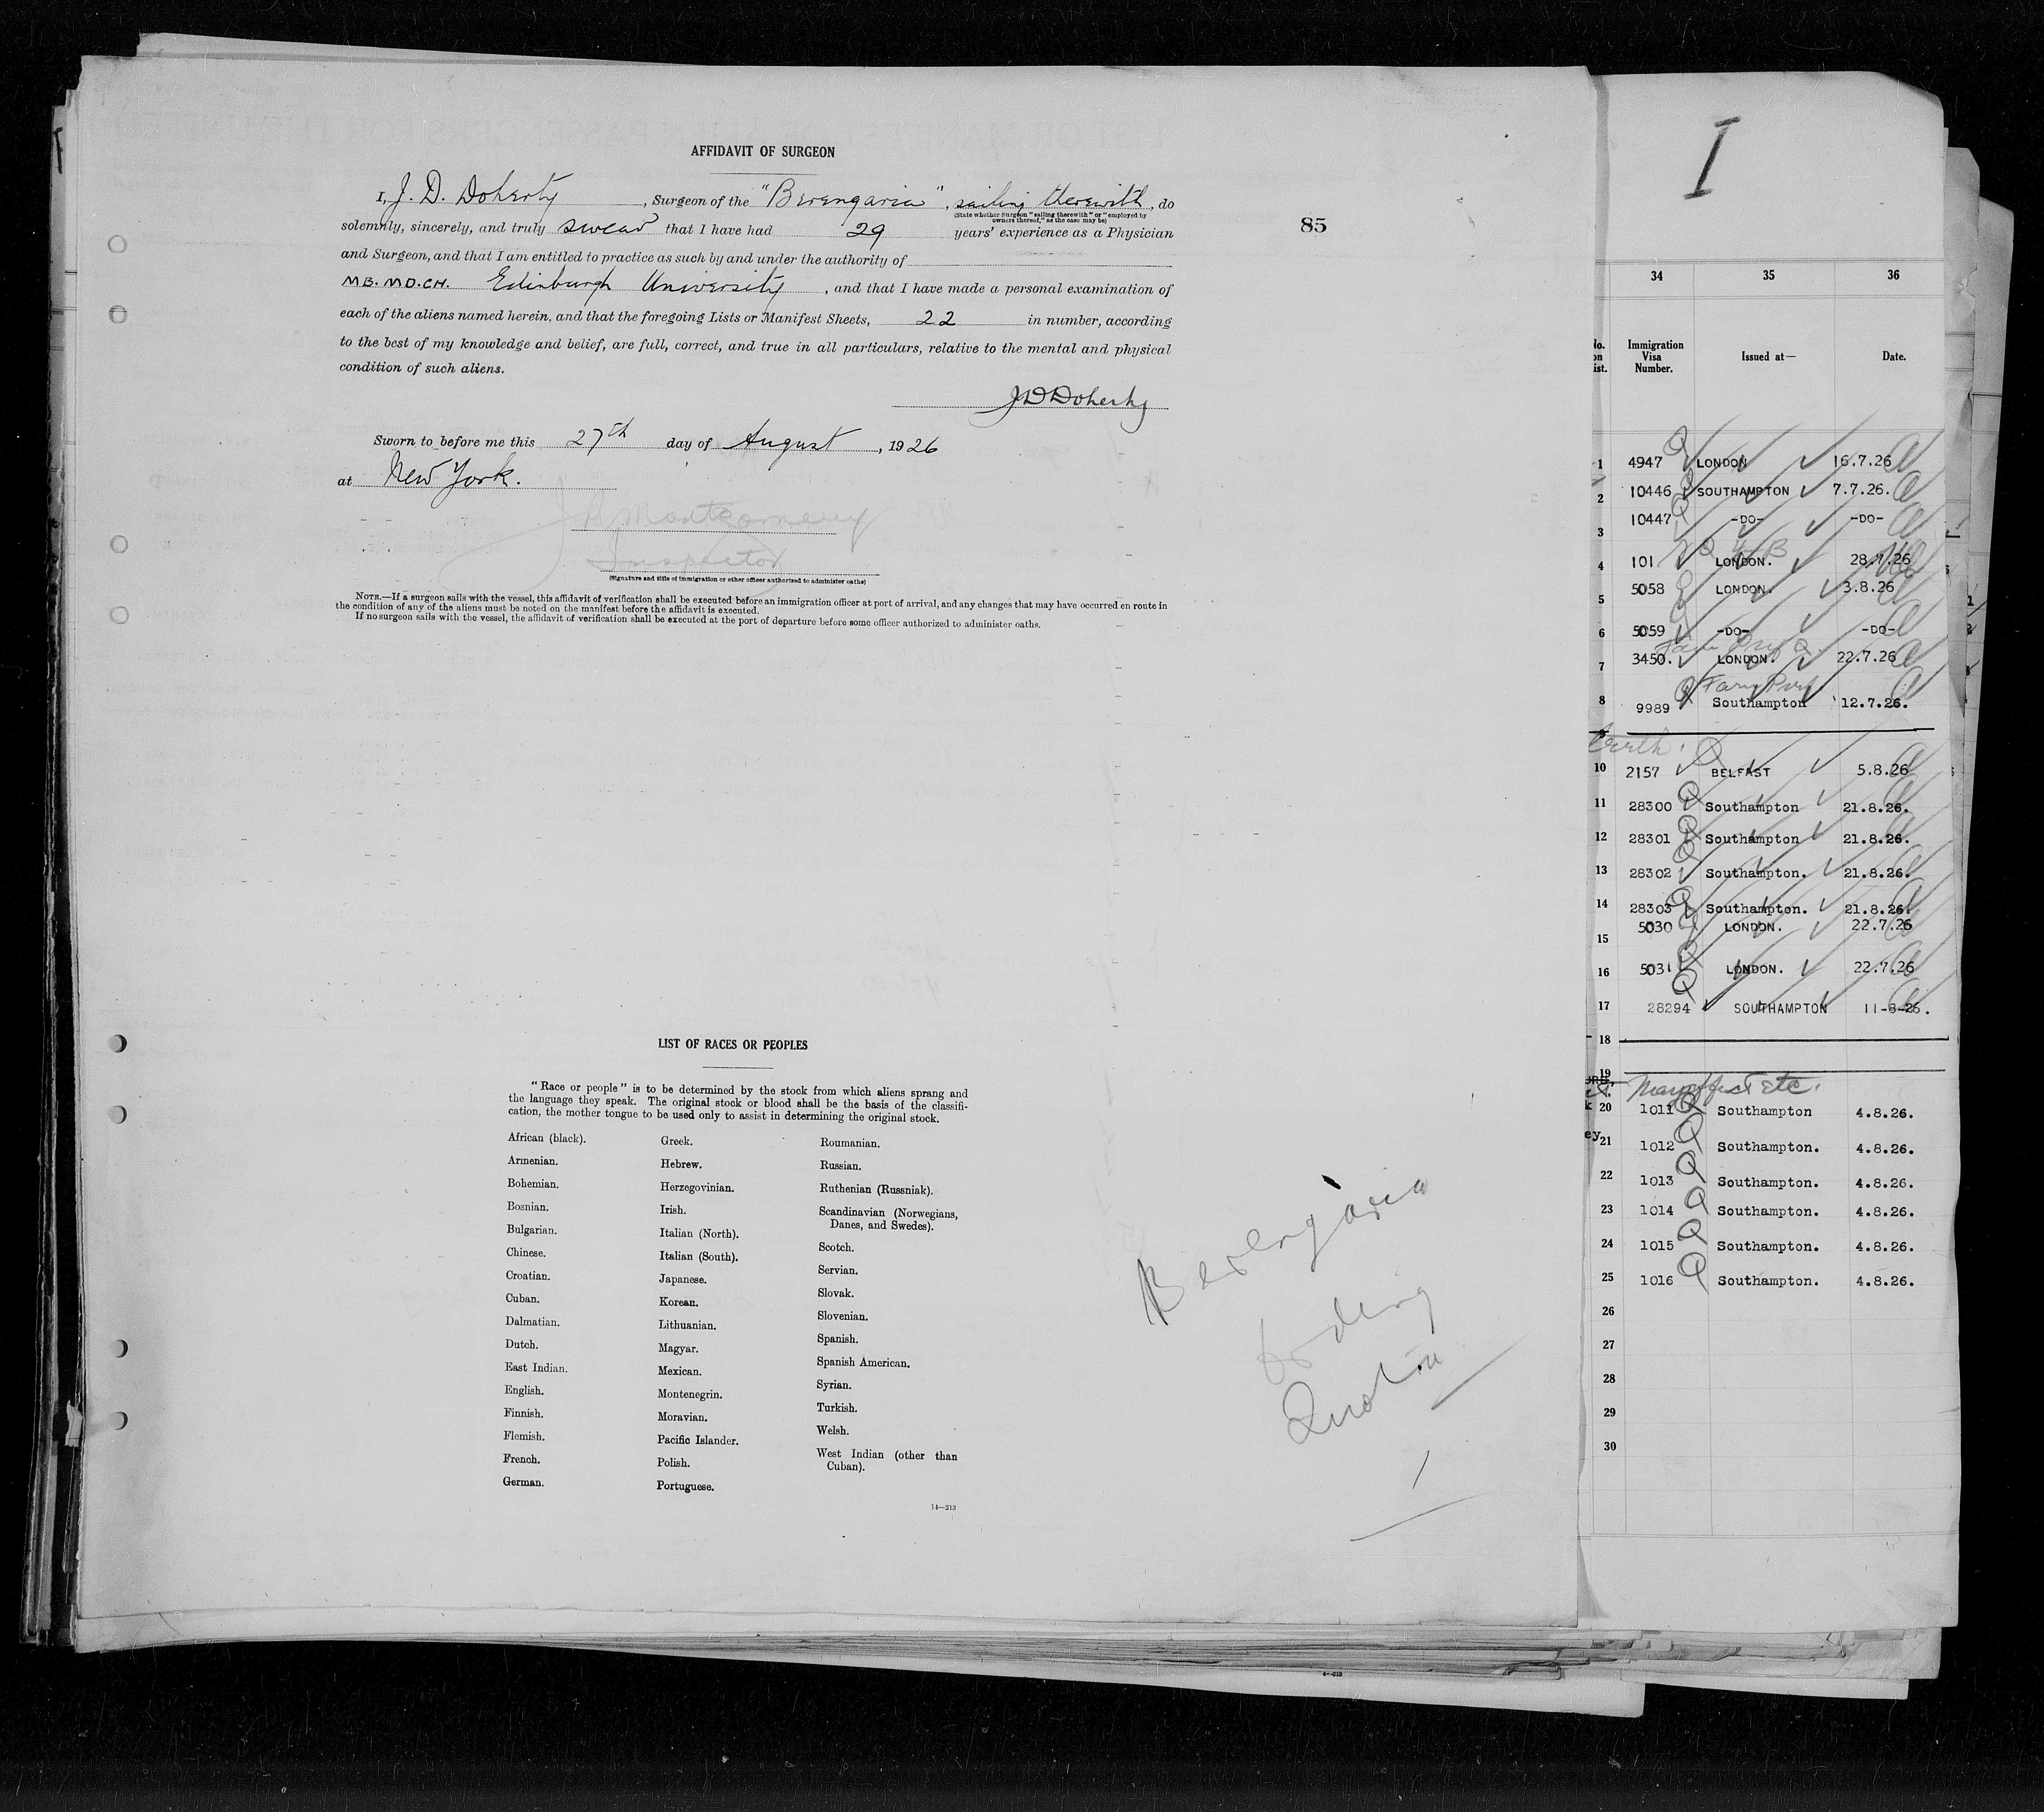 AFFIDAVIT OF SURGEON
I, J. D. Doherty, Surgeon of the "Berengaria", sailing therewith, do
(State whether Surgeon "sailing therewith" or "employed by owners thereof," as the case may be)
solemnly, sincerely, and truly swear that I have had 29 years' experience as a Physician
and Surgeon, and that I am entitled to practice as such by and under the authority of
MB. MD. CH. Edinburgh University, and that I have made a personal examination of
each of the aliens named herein, and that the foregoing Lists or Manifest Sheets, 22 in number, according
to the best of my knowledge and belief, are full, correct, and true in all particulars, relative to the mental and physical
condition of such aliens.
JD Doherty
Sworn to before me this 27th day of August, 1926
at New York.
Montgomery
Inspector
(Signature and title of immigration or other officer authorized to administer oaths)
NOTE.—If a surgeon sails with the vessel, this affidavit of verification shall be executed before an immigration officer at port of arrival, and any changes that may have occurred en route in
the condition of any of the aliens must be noted on the manifest before the affidavit is executed.
If no surgeon sails with the vessel, the affidavit of verification shall be executed at the port of departure before some officer authorized to administer oaths.
85
LIST OF RACES OR PEOPLES
"Race or people" is to be determined by the stock from which aliens sprang and
the language they speak. The original stock or blood shall be the basis of the classifi-
cation, the mother tongue to be used only to assist in determining the original stock.
African (black).
Armenian.
Bohemian.
Bosnian.
Bulgarian.
Chinese.
Croatian.
Cuban.
Dalmatian.
Dutch.
East Indian.
English.
Finnish.
Flemish.
French.
German.
Greek.
Hebrew.
Herzegovinian.
Irish.
Italian (North).
Italian (South).
Japanese.
Korean.
Lithuanian.
Magyar.
Mexican.
Montenegrin.
Moravian.
Pacific Islander.
Polish.
Portuguese.
Roumanian.
Russian.
Ruthenian (Russniak).
Scandinavian (Norwegians,
Danes, and Swedes).
Scotch.
Servian.
Slovak.
Slovenian.
Spanish.
Spanish American.
Syrian.
Turkish.
Welsh.
West Indian (other than
Cuban).
14—213
Berengaria
Quota
I
34 35 36
Immigration Visa Number. Issued at— Date.
1 4947 LONDON 16.7.26
2 10446 SOUTHAMPTON 7.7.26.
3 10447 -DO- -DO-
4 101 LONDON. 28.7.26
5 5058 LONDON. 3.8.26
6 5059 -DO- -DO-
7 3450. LONDON. 22.7.26
8 9989 Southampton 12.7.26.
9
10 2157 BELFAST 5.8.26
11 28300 Southampton 21.8.26.
12 28301 Southampton 21.8.26.
13 28302 Southampton. 21.8.26.
14 28303 Southampton. 21.8.26.
15 5030 LONDON. 22.7.26
16 5031 LONDON. 22.7.26
17 28294 SOUTHAMPTON 11-8-26.
18
19
20 1011 Southampton 4.8.26.
21 1012 Southampton. 4.8.26.
22 1013 Southampton. 4.8.26.
23 1014 Southampton. 4.8.26.
24 1015 Southampton. 4.8.26.
25 1016 Southampton. 4.8.26.
26
27
28
29
30